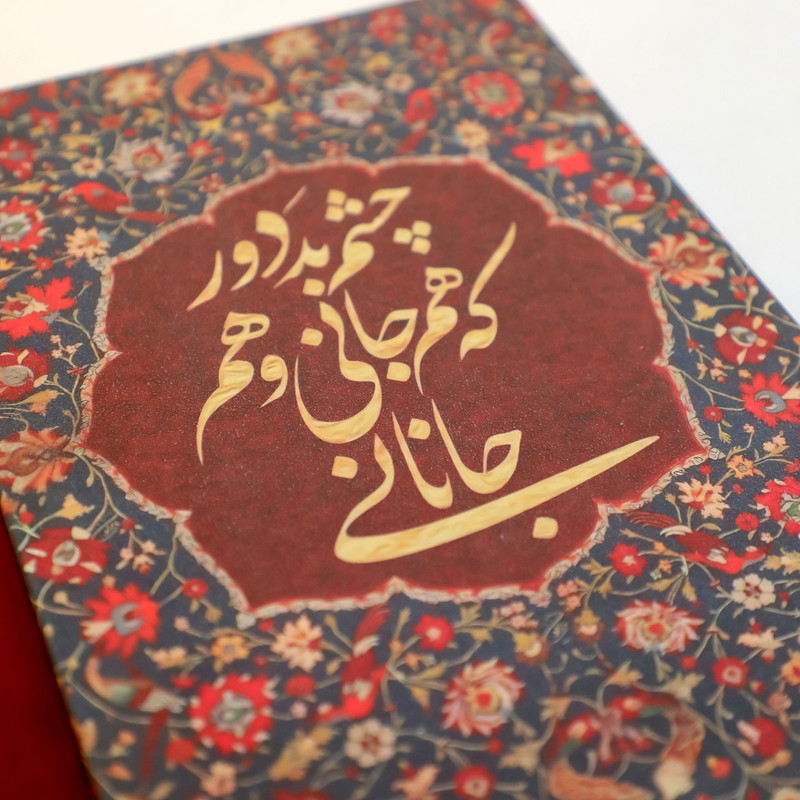 چشم بد دور
که هم جانی و هم
جانانی